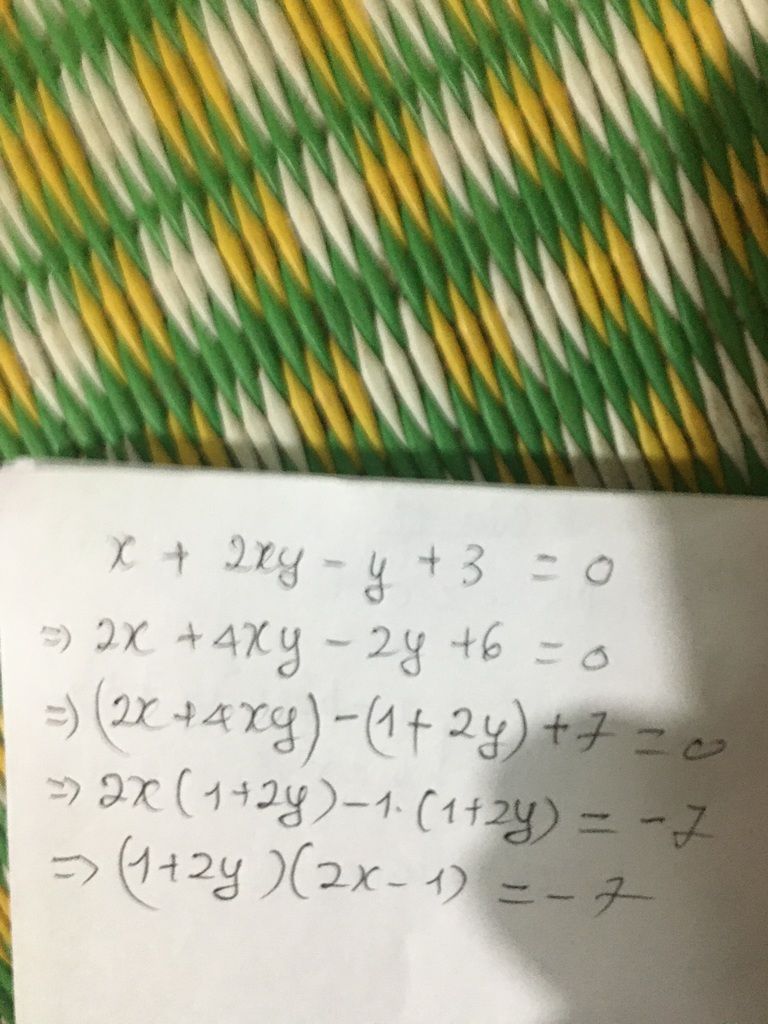 x + 2xy - y + 3 = 0
=> 2x + 4xy - 2y + 6 = 0
=> (2x + 4xy) - (1 + 2y) + 7 = 0
=> 2x (1+2y) - 1. (1+2y) = -7
=> (1+2y)(2x - 1) = -7